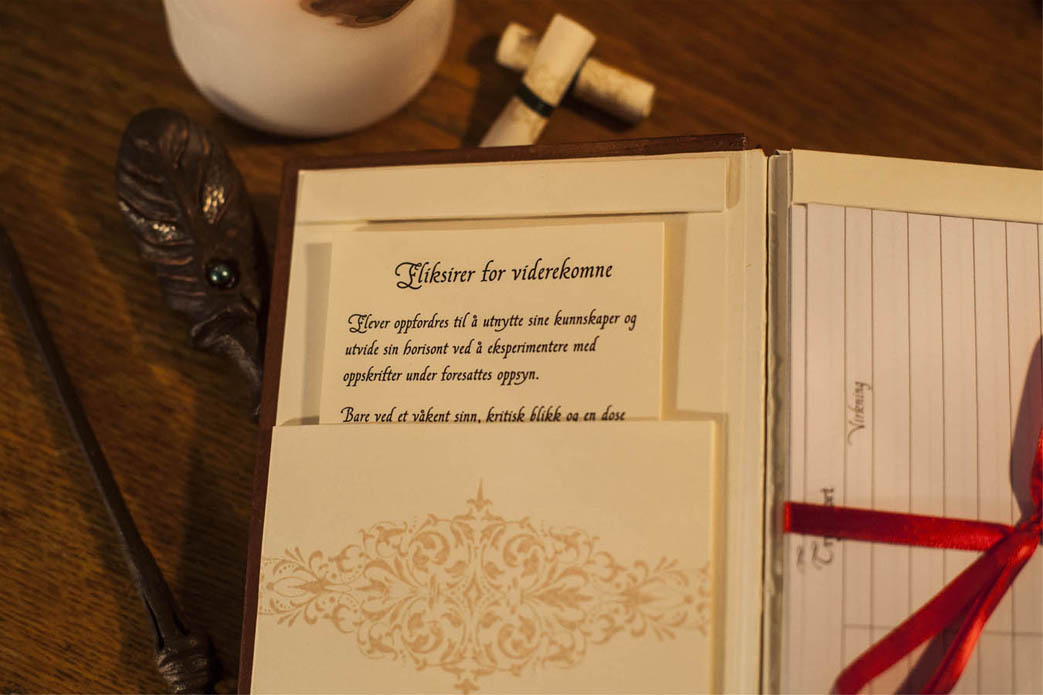 Eliksirer for viderekomne
Elever oppfordres til å utnytte sine kunnskaper og
utvide sin horisont ved å eksperimentere med
oppskrifter under foresattes oppsyn.
Bare ved et våkent sinn, kritisk blikk og en dose
Virkning